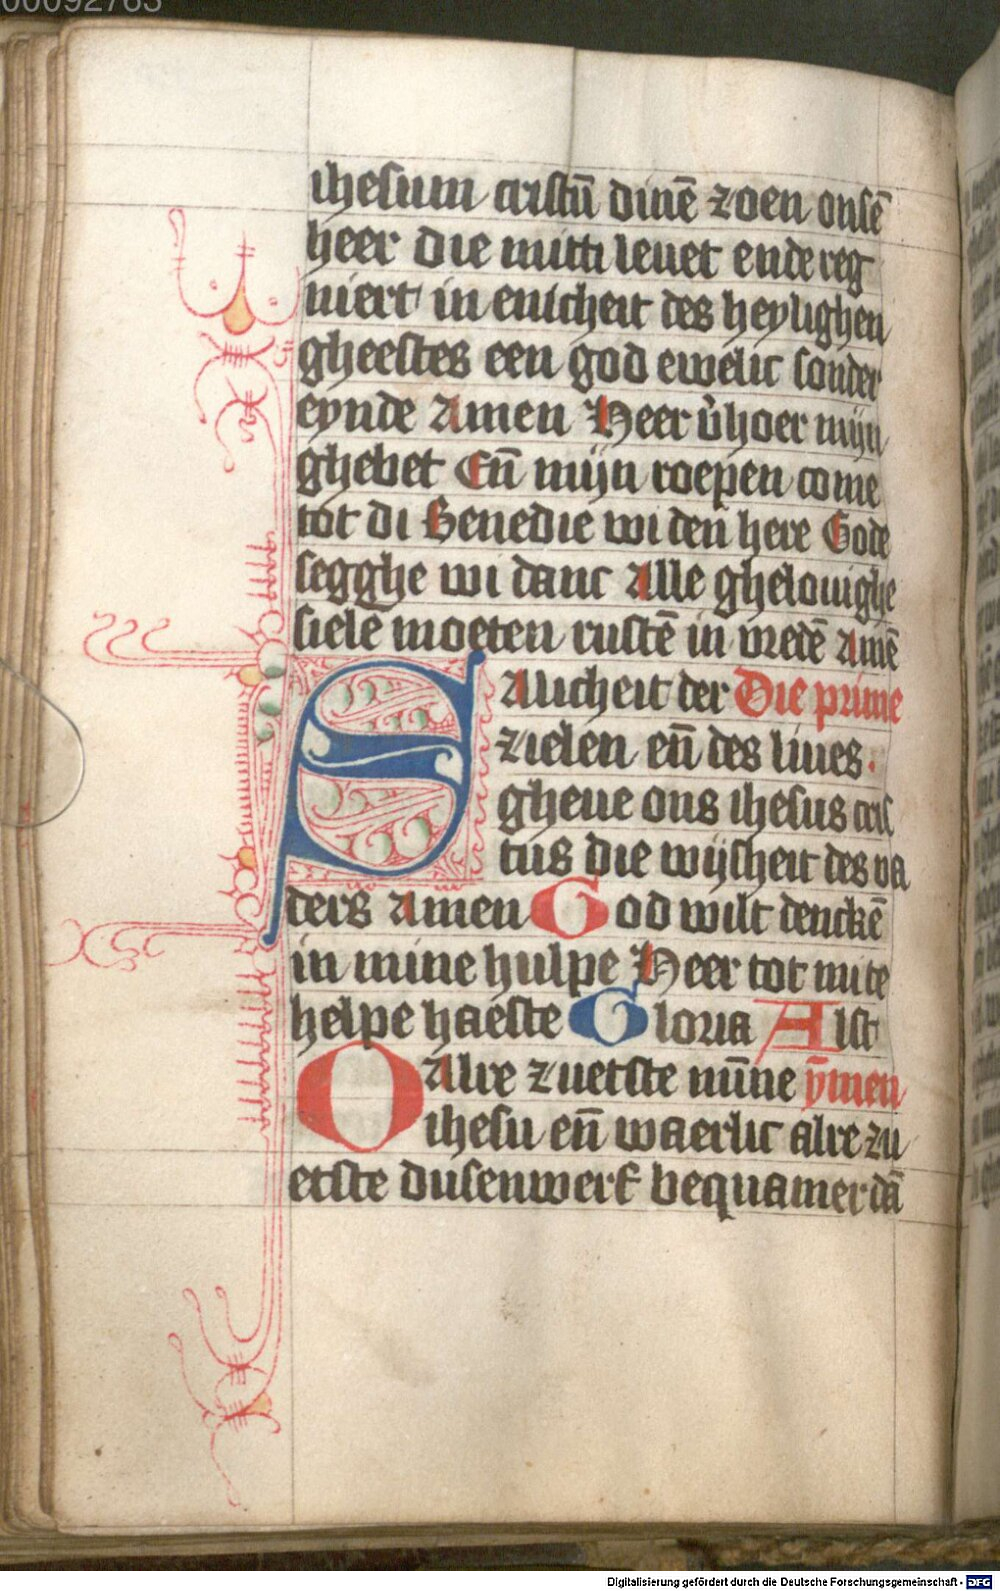 00092763
ihesum cristū dinē zoen onsē
heer die mitti leuet ende reg
niert in enicheit des heylighen
gheestes een god ewelic sonder
eynde Amen Heer v̄hoer mijn
ghebet Eñ mijn roepen come
tot di Benedie wi den here Gode
segghe wi danc Alle ghelouighe
siele moeten rustē in vredē Amē
SAlicheit der Die prime
zielen eñ des liues.
gheue ons ihesus cris
tus die wijsheit des va
ders Amen God wilt denckē
in mine hulpe Heer tot mi te
helpe haeste Gloria Alst
O Alre zuetste mīne ȳmen
ihesu eñ waerlic alre zu
etste dusenwerf bequamer dā
Digitalisierung gefördert durch die Deutsche Forschungsgemeinschaft - DFG